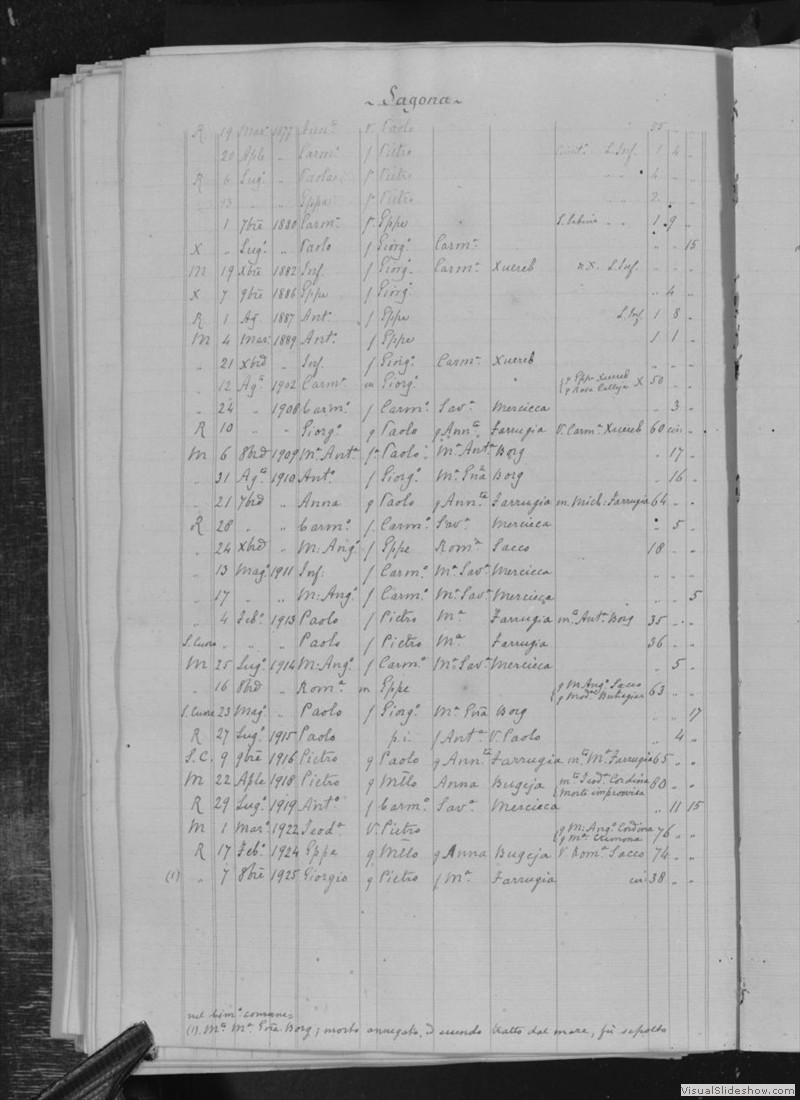 ~ Sagona ~
R 19 Mar. 1877 v. Paolo 55 „
20 Aple „ Carm.º f Pietro S. Inf. 1 4 „
R 6 Lug.º „ Paolo f Pietro 4 „
13 „ „ Eppe f Pietro 2 „
1 7bre 1880 Carm.º f. Eppe S. Sabina „ „ 1 9 „
X „ Lug.º „ Paolo f Giorg.º Carm.ª „ „ 15
M 19 Xbre 1882 Inf. f Giorg.º Carm.ª Xuereb S. Inf. „ „ „
X 7 9bre 1886 Eppe f Giorg.º „ 4 „
R 1 Ag. 1887 Ant.º f Eppe S. Inf. 1 8 „
M 4 Mar. 1889 Ant.º f Eppe 1 1 „
„ 21 Xbre „ Inf. f Giorg.º Carm.ª Xuereb „ „ „
„ 12 Ag.º 1902 Carm.ª m Giorg.º „ { g Eppe Xuereb g Rosa Calleja X 50 „ „
„ 24 „ 1908 Carm.º f Carm.º Sav.ª Mercieca „ 3 „
R 10 „ „ Giorg.º g Paolo g Ann.ta Farrugia V. Carm.ª Xuereb 60 cir „
M 6 8bre 1909 M.ª Ant.ª f. Paolo M.ª Ant.ª Borg „ 17 „
„ 31 Ag.º 1910 Ant.º f Giorg.º M.ª Gña Borg „ 16 „
„ 21 7bre „ Anna g Paolo g Ann.ta Farrugia m. Mich: Farrugia 64 „ „
R 28 „ „ Carm.º f. Carm.º Sav.ª Mercieca „ 5 „
„ 24 Xbre „ M: Ang.ª f Eppe Rom.ª Sacco 18 „ „
„ 13 Mag.º 1911 Inf: f Carm.º M.ª Sav.ª Mercieca „ „ „
„ 17 „ „ M: Ang.ª f Carm.º M.ª Sav.ª Mercieca „ „ 5
„ 4 Feb.º 1913 Paolo f Pietro M.ª Farrugia m.ª Ant.ª Borg 35 „ „
S. Cuore „ „ „ Paolo f Pietro M.ª Farrugia 36 „ „
M 25 Lug.º 1914 M: Ang.ª f Carm.º M.ª Sav.ª Mercieca „ 5 „
„ 16 8bre „ Rom.ª m Eppe { g M. Ang.º Sacco g Mad.ª Buhagiar 63 „ „
S. Cuore 23 Mag.º „ Paolo f Giorg.º M.ª Gña Borg „ „ 17
R 27 Lug.º 1915 Paolo p.i. f Ant.ª V. Paolo „ 4 „
S. C. 9 9bre 1916 Pietro g Paolo g Ann.ta Farrugia m.ª M.ª Farrugia 65 „ „
M 22 Aple 1918 Pietro g Mllo Anna Bugeja { m.ª Teod.ª Cordina morte improvvisa 80 „ „
R 29 Lug.º 1919 Ant.º f Carm.º Sav.ª Mercieca „ 11 15
M 1 Mar.º 1922 Teod.ª V. Pietro { g M: Ang.º Cordina g M.ª Cremona 76 „ „
R 17 Feb.º 1924 Eppe g Mllo g Anna Bugeja V. Rom.ª Sacco 74 „ „
(1) „ 7 8bre 1925 Giorgio g Pietro f M.ª Farrugia cir 38 „ „
nel Cim.º comune =
(1). M.ª M.ª Gña. Borg; morto annegato, d essendo tratto dal mare, fù sepolto
VisualSlideshow.com